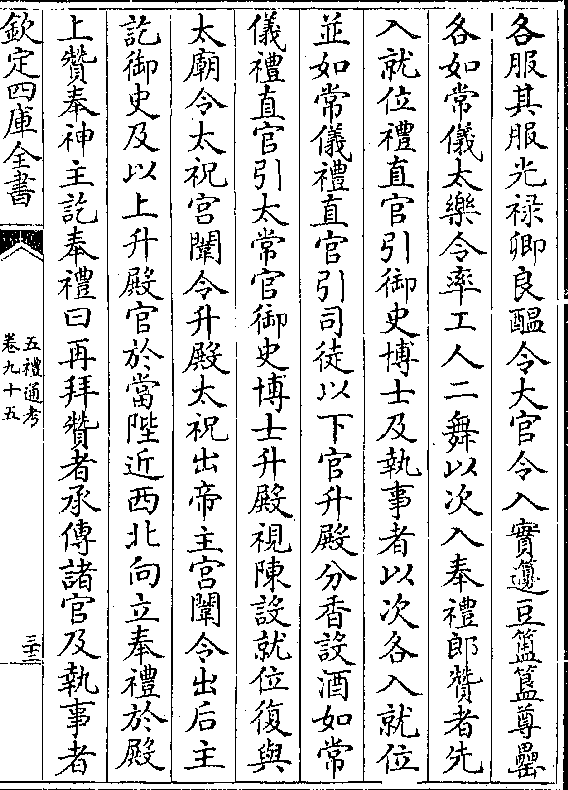 各服其服光禄卿良醖令大官令入實籩豆簠簋尊罍
各如常儀太樂令率工人二舞以次入奉禮郎贊者先
入就位禮直官引御史博士及執事者以次各入就位
並如常儀禮直官引司徒以下官升殿分香設酒如常
儀禮直官引太常官御史博士升殿視陳設就位復與
太廟令太祝宫闈令升殿太祝出帝主宫闈令出后主
訖御史及以上升殿官於當陛近西北向立奉禮於殿
上贊奉神主訖奉禮曰再拜贊者承傳諸官及執事者
欽定四庫全書
五禮通考
卷九十五
三十三